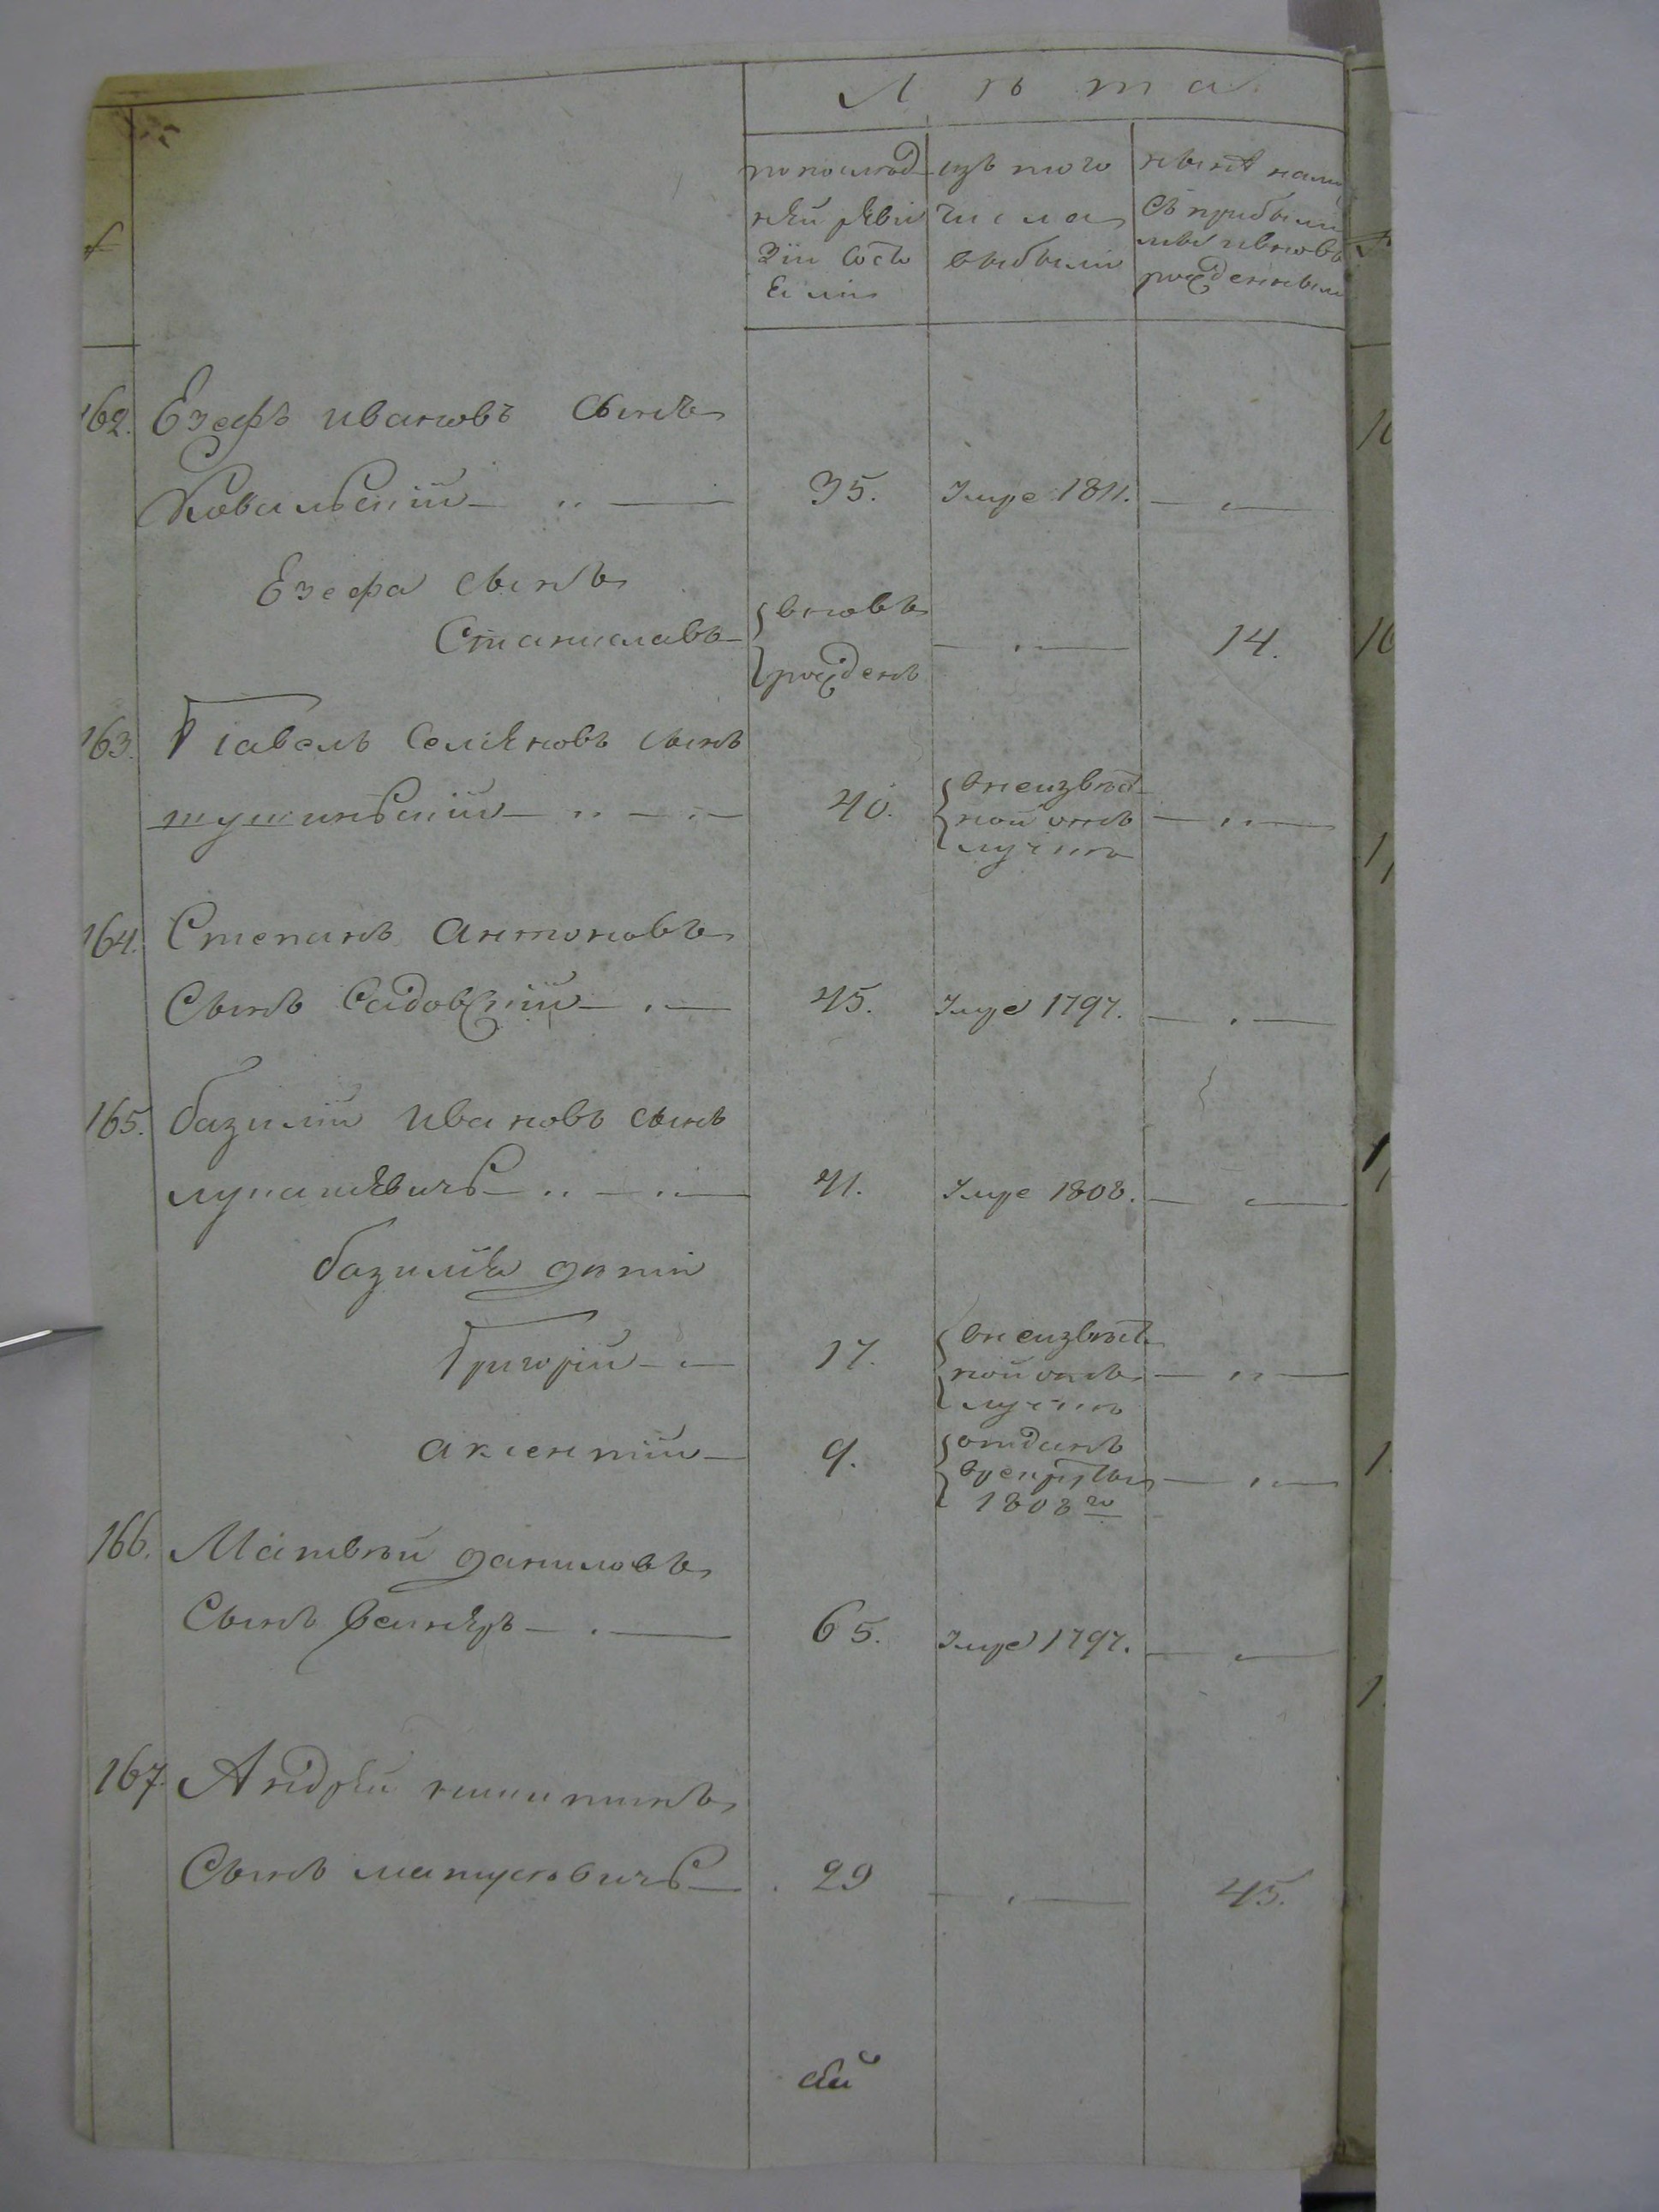 Лѣта
попослѣд
нѣй реви
зіи состо
яли
изъ того
числа
выбыли
нынѣ нали
съ прибылы
мы ивновь
рожденным
162. Езефъ ивановъ сынъ
Ковальскій 35. Умре 1811.
Езефа сынъ
Станиславъ вновь рожденъ 14.
163. Павелъ Семеновъ сынъ
40. внеизвѣст
ной отъ
лучкѣ
164. Степанъ антоновъ
Сынъ Садовскій 45. Умре 1797.
165. базилій ивановъ сынъ
лукашевичъ 41. Умре 1808.
базилія дѣти
Григорій 17. внеизвѣст
ной отъ
лучкѣ
аксентій 9. отданъ
врекруты
1808го
166. Матвѣй даниловъ
Сынъ 65. Умре 1797.
167. Андрей
Сынъ матусевичъ 29 45.